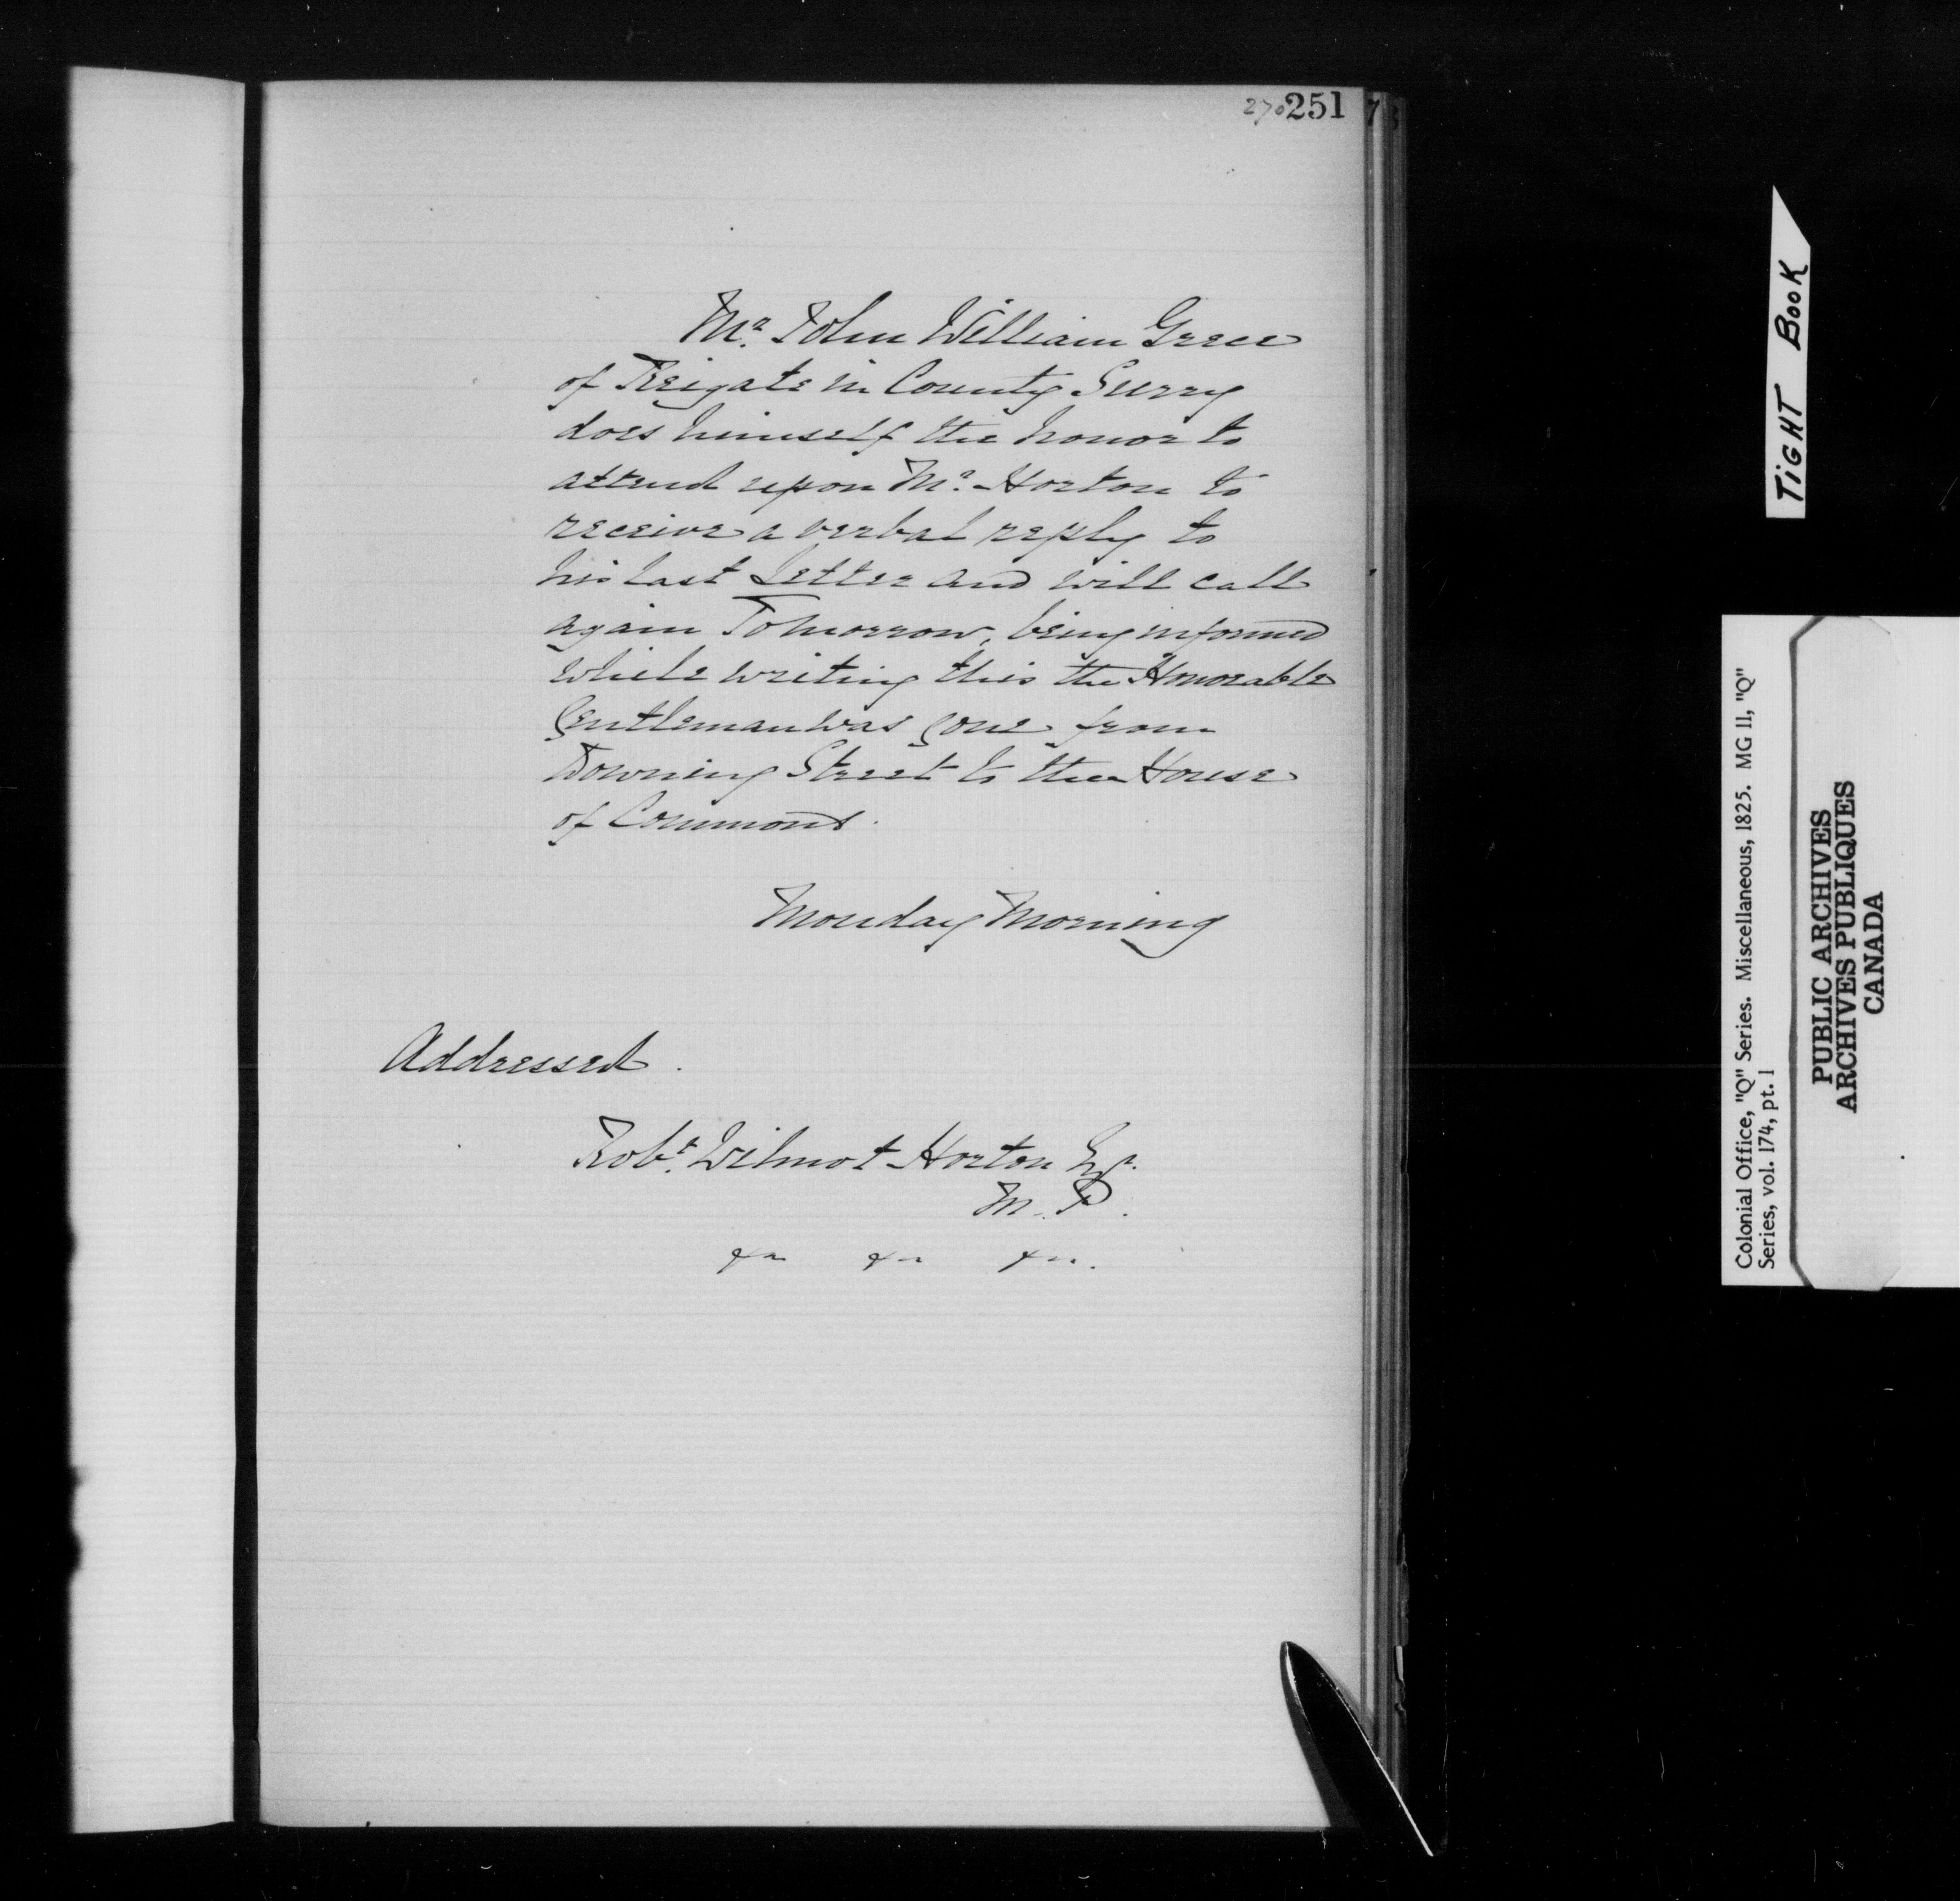 270 251
Mr. John William Greece
of Reigate in County Surry
does himself the honor to
attend upon Mr. Horton to
receive a verbal reply to
his last Letter and will call
again Tomorrow, being informed
while writing this the Honorable
Gentleman was gone from
Downing Street to the House
of Commons.
Monday Morning
Addressed.
Robt. Wilmot Horton Esqr.
M. P.
&c &c &c.
TIGHT BOOK
Colonial Office, "Q" Series. Miscellaneous, 1825. MG 11, "Q"
Series, vol. 174, pt. 1
PUBLIC ARCHIVES
ARCHIVES PUBLIQUES
CANADA